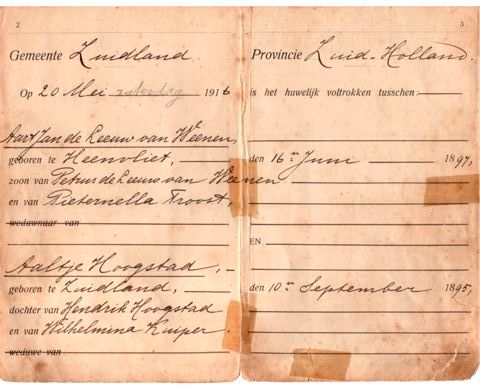 2
Gemeente Zuidland.
Op 20 Mei zaterdag 1916
Aart Jan de Leeuw van Weenen,
geboren te Heenvliet,
zoon van Petrus de Leeuw van Weenen
en van Pieternella Troost,
weduwnaar van
Aaltje Hoogstad,
geboren te Zuidland,
dochter van Hendrik Hoogstad
en van Wilhelmina Kuiper.
weduwe van
3
Provincie Zuid-Holland.
is het huwelijk voltrokken tusschen:
den 16en Juni 1897,
EN
den 10en September 1895,